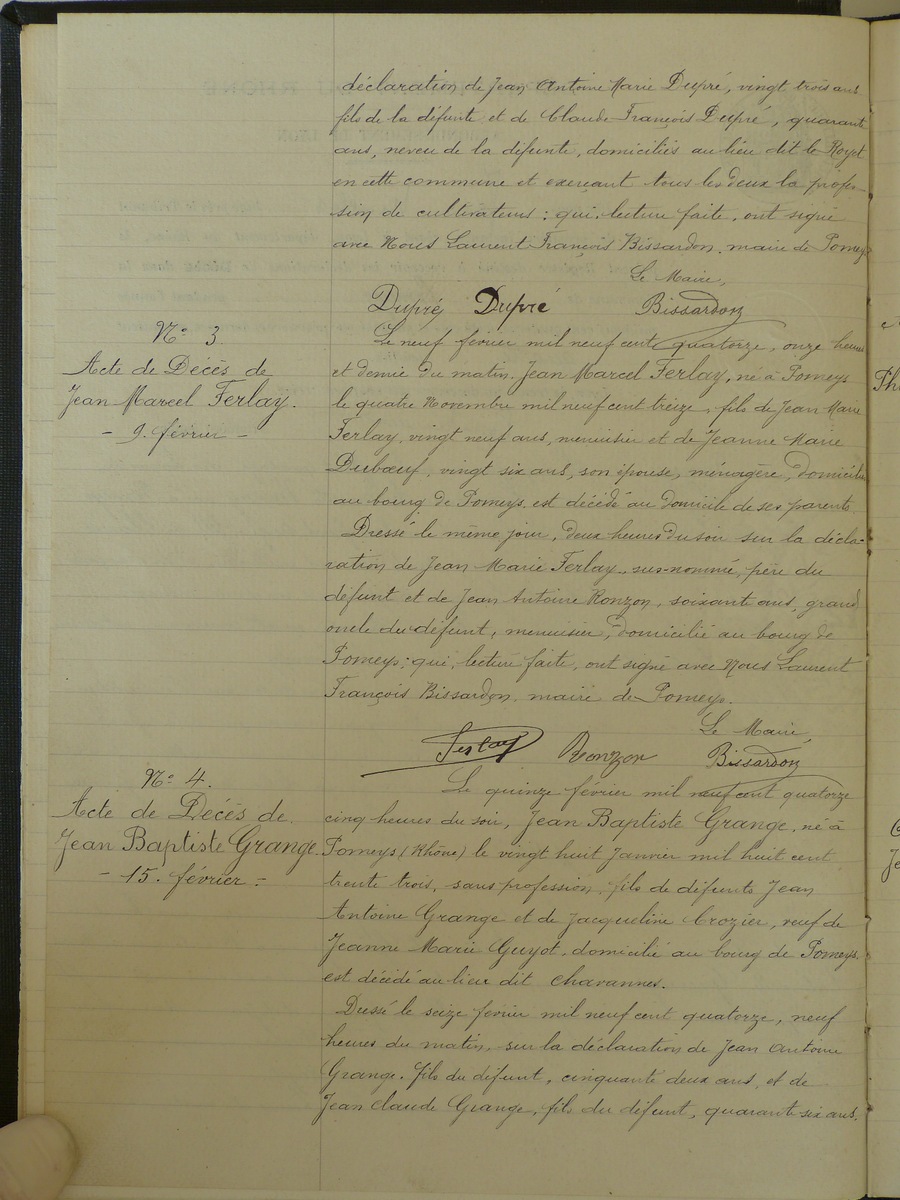 déclaration de Jean Antoine Marie Dupré, vingt trois ans
fils de la défunte et de Claude François Dupré, quarante
ans, neveu de la défunte, domiciliés au lieu dit le
en cette commune et exerçant tous les deux la profes-
sion de cultivateurs : qui, lecture faite, ont signé
avec Nous Laurent François Bissardon, maire de Pomeys
Le Maire,
Dupré Dupré Bissardon
N° 3
Acte de Décès de
Jean Marcel Ferlay.
- 9. février -
Le neuf février mil neuf cent quatorze, onze heures
et demie du matin, Jean Marcel Ferlay, né à Pomeys
le quatre Novembre mil neuf cent treize, fils de Jean Marie
Ferlay, vingt neuf ans, menuisier et de Jeanne Marie
Dubœuf, vingt six ans, son épouse, ménagère, domiciliés
au bourg de Pomeys, est décédé au domicile de ses parents.
Dressé le même jour, deux heures du soir sur la décla-
ration de Jean Marie Ferlay, sus-nommé, père du
défunt et de Jean Antoine Ronzon, soixante ans, grand
oncle du défunt, menuisier, domicilié au bourg de
Pomeys ; qui, lecture faite, ont signé avec Nous Laurent
François Bissardon, maire de Pomeys.
Le Maire,
Ferlay Ronzon Bissardon
N° 4.
Acte de Décès de
Jean Baptiste Grange.
- 15. février -
Le quinze février mil neuf cent quatorze
cinq heures du soir, Jean Baptiste Grange, né à
Pomeys (Rhône) le vingt huit Janvier mil huit cent
trente trois, sans profession, fils de défunts Jean
Antoine Grange et de Jacqueline Crozier, veuf de
Jeanne Marie Guyot, domicilié au bourg de Pomeys,
est décédé au lieu dit Chavannes.
Dressé le seize février mil neuf cent quatorze, neuf
heures du matin, sur la déclaration de Jean Antoine
Grange, fils du défunt, cinquante deux ans, et de
Jean Claude Grange, fils du défunt, quarante-six ans,